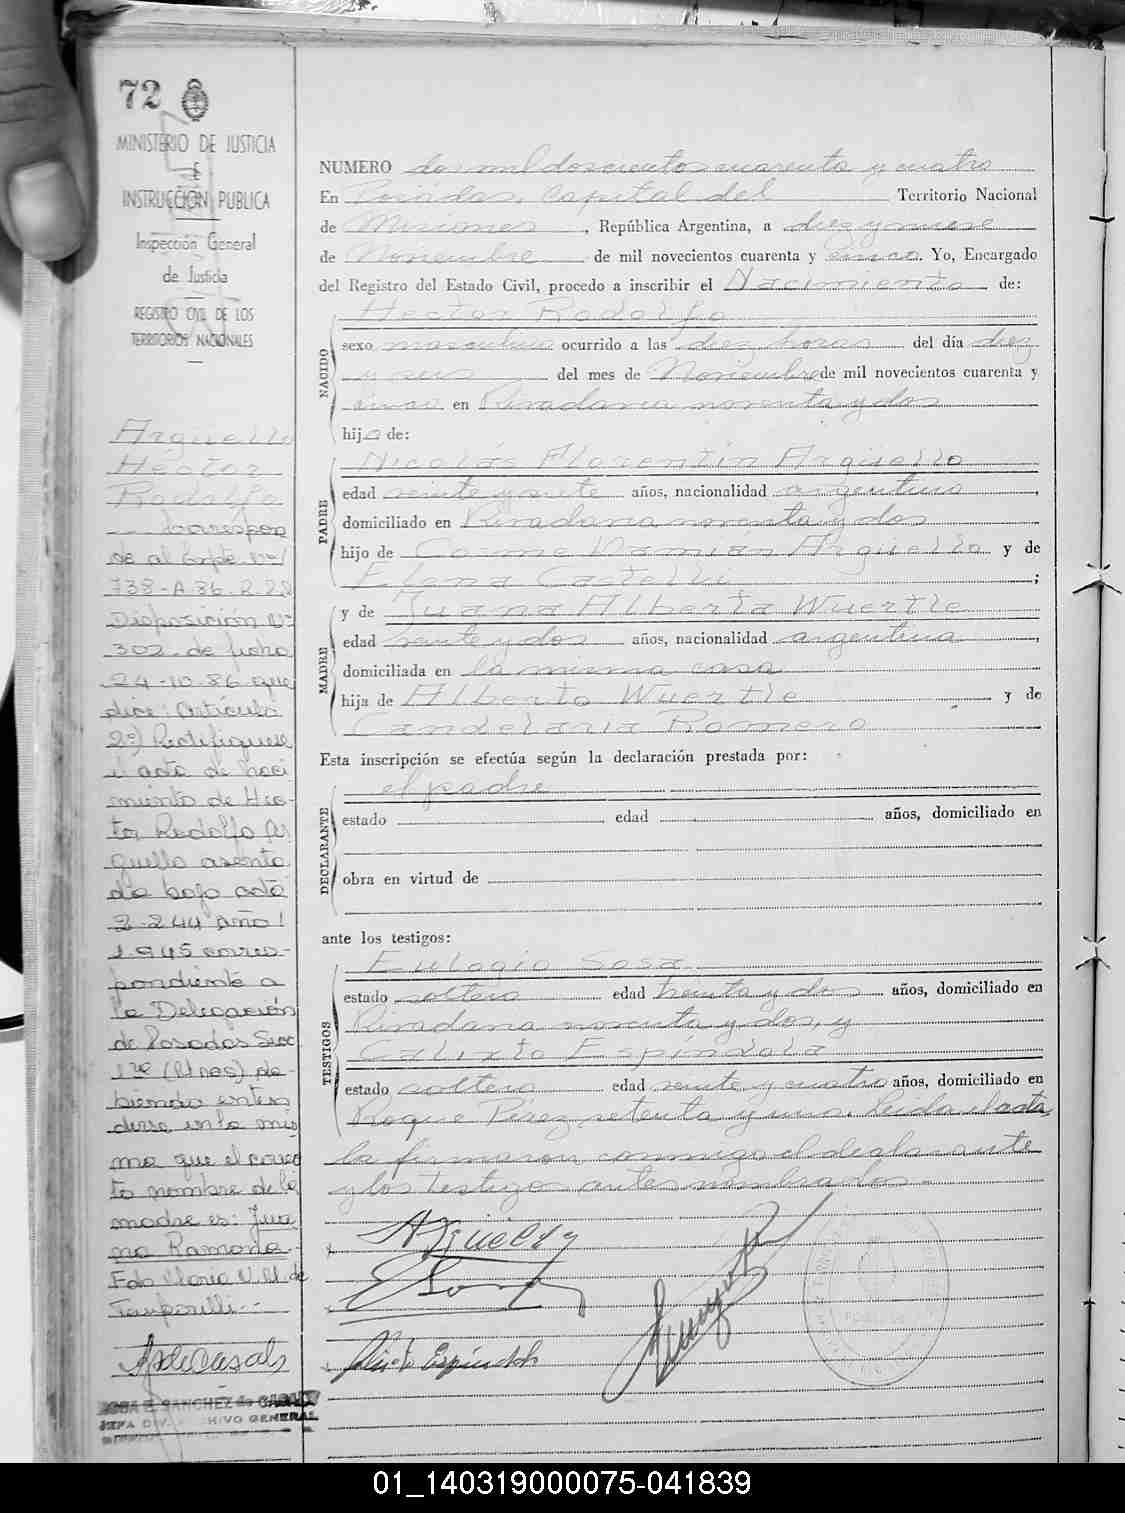 72
MINISTERIO DE JUSTICIA
E
INSTRUCCIÓN PUBLICA
Inspección General
de Justicia
REGISTRO CIVIL DE LOS
TERRITORIOS NACIONALES
Argüello
Hector
Rodolfo
Correspon
de al Expte. Nº
738-A-86-2.22
Disposición Nº
302 de fecha
24-10-86 que
dice: Artículo
2º) Rectifíquese
el acta de naci
miento de Héc-
tor Rodolfo Ar
guello asenta
da bajo acta
2.244 año
1.945 corres-
pondiente a
la Delegación
de Posadas Secc
1ra (Unos) de-
biendo enten
derse en la mis
ma que el correc
to nombre de la
madre es: Jua
na Ramona.
Fdo Maria V. M. de
SANCHEZ de CASALS
JEFA DIV. ARCHIVO GENERAL
NUMERO dos mil doscientos cuarenta y cuatro
En Posadas, Capital del Territorio Nacional
de Misiones, República Argentina, a diez y nueve
de Noviembre de mil novecientos cuarenta y cinco. Yo, Encargado
del Registro del Estado Civil, procedo a inscribir el Nacimiento de:
Hector Rodolfo
NACIDO
sexo masculino ocurrido a las diez horas del día diez
y seis del mes de Noviembre de mil novecientos cuarenta y
cinco en Rivadavia noventa y dos
hijo de:
Nicolás Florentin Argüello
PADRE
edad veinte y siete años, nacionalidad argentino,
domiciliado en Rivadavia noventa y dos
hijo de Cosme Damián Argüello y de
Elena Castelli;
y de Juana Alberta Wuertle
MADRE
edad veinte y dos años, nacionalidad argentina,
domiciliada en la misma casa
hija de Alberto Wuertle y de
Candelaria Romero
Esta inscripción se efectúa según la declaración prestada por:
el padre
DECLARANTE
estado edad años, domiciliado en
obra en virtud de
ante los testigos:
Eulogio Sosa
TESTIGOS
estado soltero edad treinta y dos años, domiciliado en
Rivadavia noventa y dos, y
Calixto Espíndola
estado soltero edad veinte y cuatro años, domiciliado en
Roque Perez setenta y uno. Leida el acta,
la firmaron conmigo el declarante
y los testigos antes nombrados.-
Argüello
E Sosa
Espíndola
01_140319000075-041839